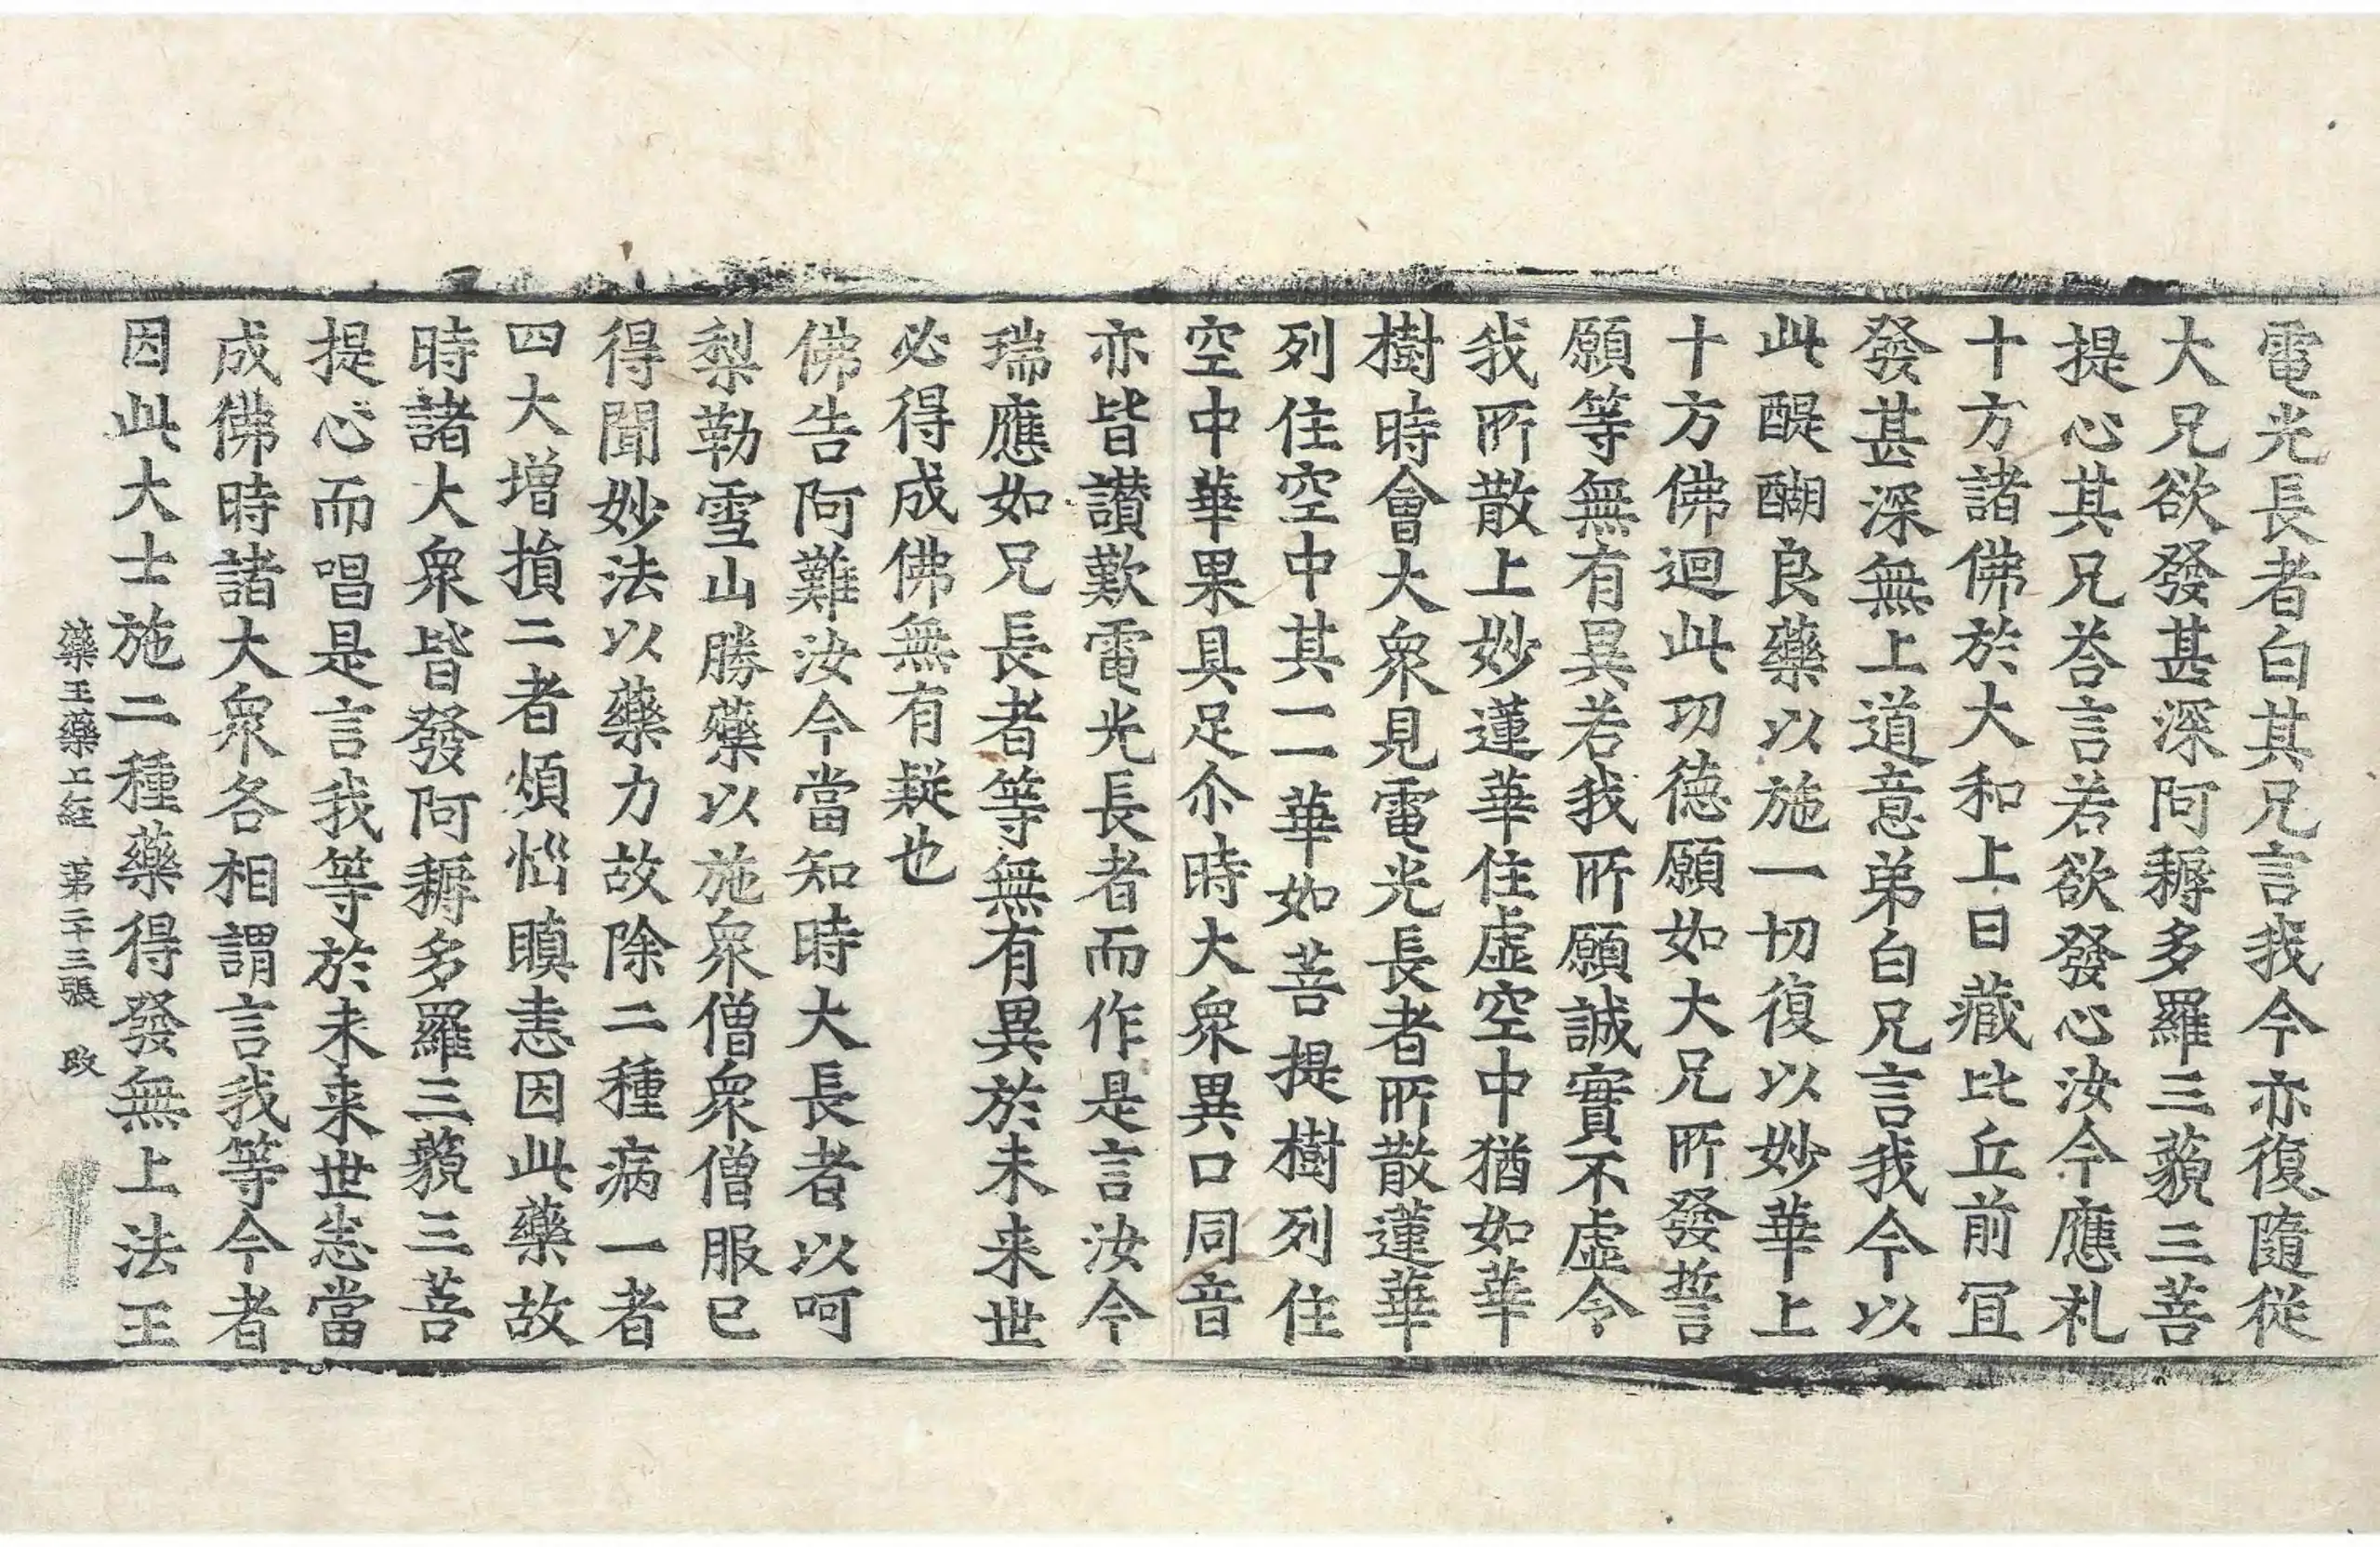 電光長者白其兄言我今亦復隨從
大兄欲發甚深阿耨多羅三藐三菩
提心其兄荅言若欲發心汝今應礼
十方諸佛於大和上日藏比丘前冝
發甚深無上道意弟白兄言我今以
此醍醐良藥以施一切復以妙華上
十方佛迴此功德願如大兄所發誓
願等無有異若我所願誠實不虛令
我所散上妙蓮華住虛空中猶如華
樹時會大衆見電光長者所散蓮華
列住空中其一一華如菩提樹列住
空中華果具足尒時大衆異口同音
亦皆讃歎電光長者而作是言汝今
瑞應如兄長者等無有異於未来世
必得成佛無有疑也
佛告阿難汝今當知時大長者以呵
梨勒雪山勝藥以施衆僧衆僧服已
得聞妙法以藥力故除二種病一者
四大増損二者煩惱瞋恚因此藥故
時諸大衆皆發阿耨多羅三藐三菩
提心而唱是言我等於未来世悉當
成佛時諸大衆各相謂言我等今者
因此大士施二種藥得發無上法王
藥王藥上経 苐二十三張 改